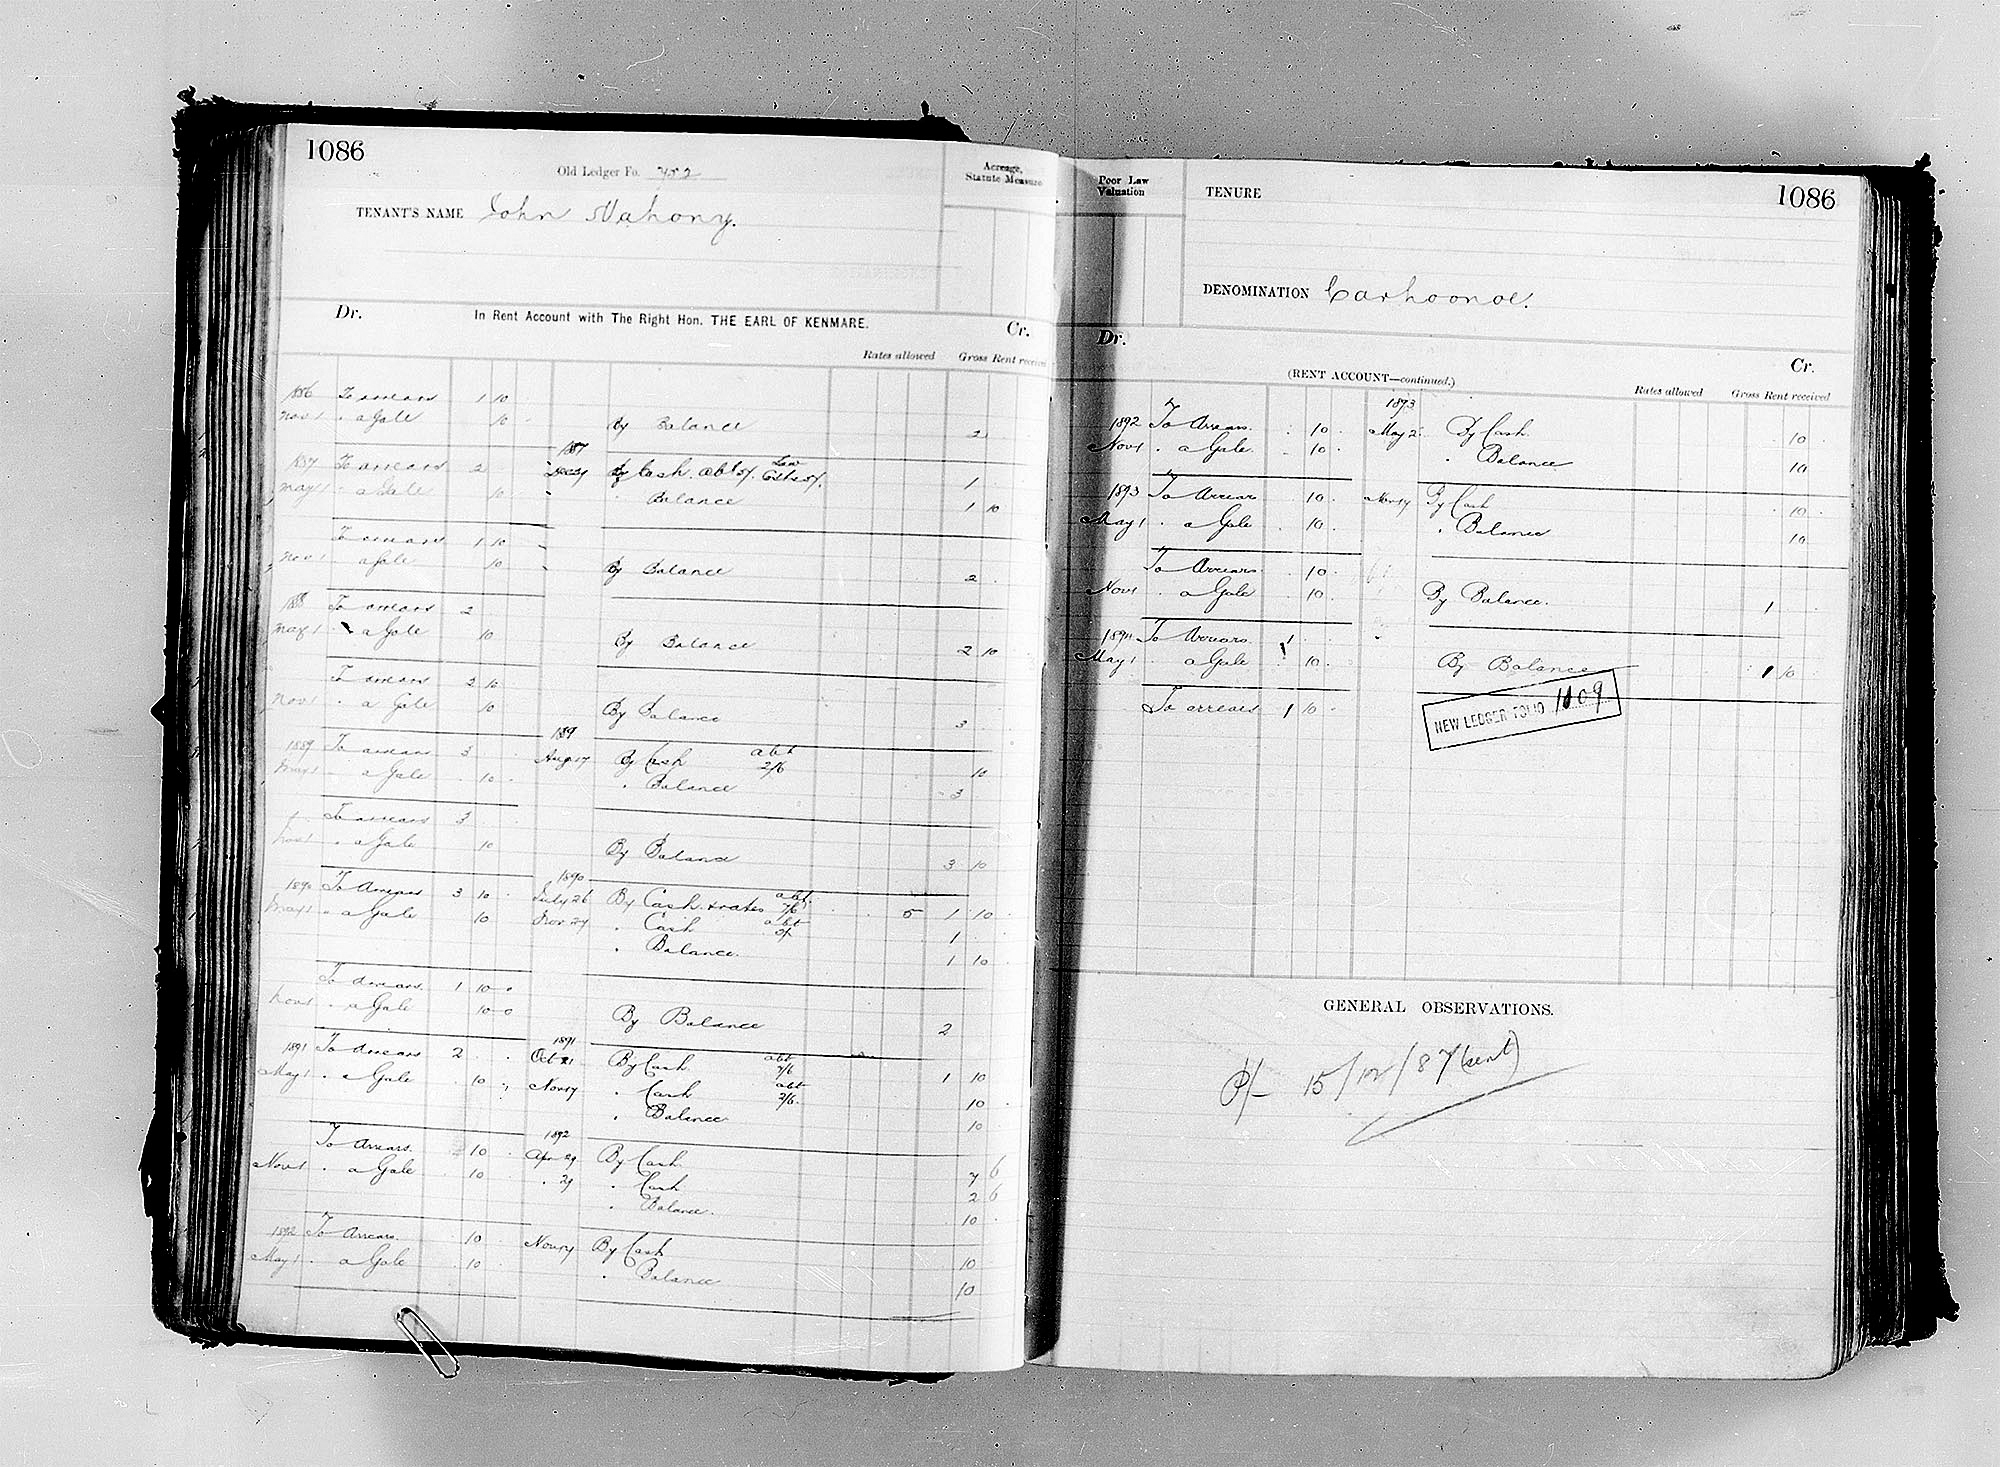 1086
Old Ledger Fo. 752
Acreage, Statute Measure
TENANT'S NAME John Mahony.
Dr. In Rent Account with The Right Hon. THE EARL OF KENMARE. Cr.
Rates allowed Gross Rent received
1886 To arrears 1 10
Nov 1 " a Gale 10 By Balance 2
1887
1887 To arrears 2 Dec 29 By Cash abt 5/. Law Costs 5/. 1
May 1 " a Gale 10 " Balance 1 10
To arrears 1 10
Nov 1 a Gale 10 By Balance 2
1888 To arrears 2
May 1 " a Gale 10 By Balance 2 10
To arrears 2 10
Nov 1 " a Gale 10 By Balance 3
1889
1889 To arrears 3 Aug 17 By Cash abt 2/6 10
May 1 " a Gale 10 " Balance 3
To arrears 3
Nov 1 " a Gale 10 By Balance 3 10
1890
1890 To Arrears 3 10 July 26 By Cash & rates abt 7/6 5 1 10
May 1 " a Gale 10 Nov 27 " Cash abt 5/. 1
" Balance. 1 10
To Arrears. 1 10 0
Nov 1 " a Gale 10 0 By Balance 2
1891
1891 To Arrears 2 Oct 21 By Cash abt 7/6 1 10
May 1 " a Gale 10 Nov 17 " Cash abt 2/6. 10
" Balance 10
1892
To Arrears. 10 Apr 29 By Cash 7 6
Nov 1 " a Gale 10 " 29 " Cash 2 6
" Balance. 10
1892 To Arrears. 10 Nov 14 By Cash 10
May 1 " a Gale 10 " Balance 10
Poor Law Valuation
TENURE
1086
DENOMINATION Carhoonoe.
Dr. Cr.
(RENT ACCOUNT—continued.)
Rates allowed Gross Rent received
1893
1892 To Arrears. 10 May 2 By Cash 10
Nov 1 " a Gale. 10 " Balance 10
1893 To Arrears 10 Nov 17 By Cash 10
May 1 " a Gale 10 " Balance 10
To Arrears 10
Nov 1 " a Gale 10 By Balance. 1
1894 To Arrears 1
May 1 " a Gale 10 By Balance 1 10
To arrears 1 10
NEW LEDGER FOLIO 1109
GENERAL OBSERVATIONS.
P/- 15/12/87 (sent)